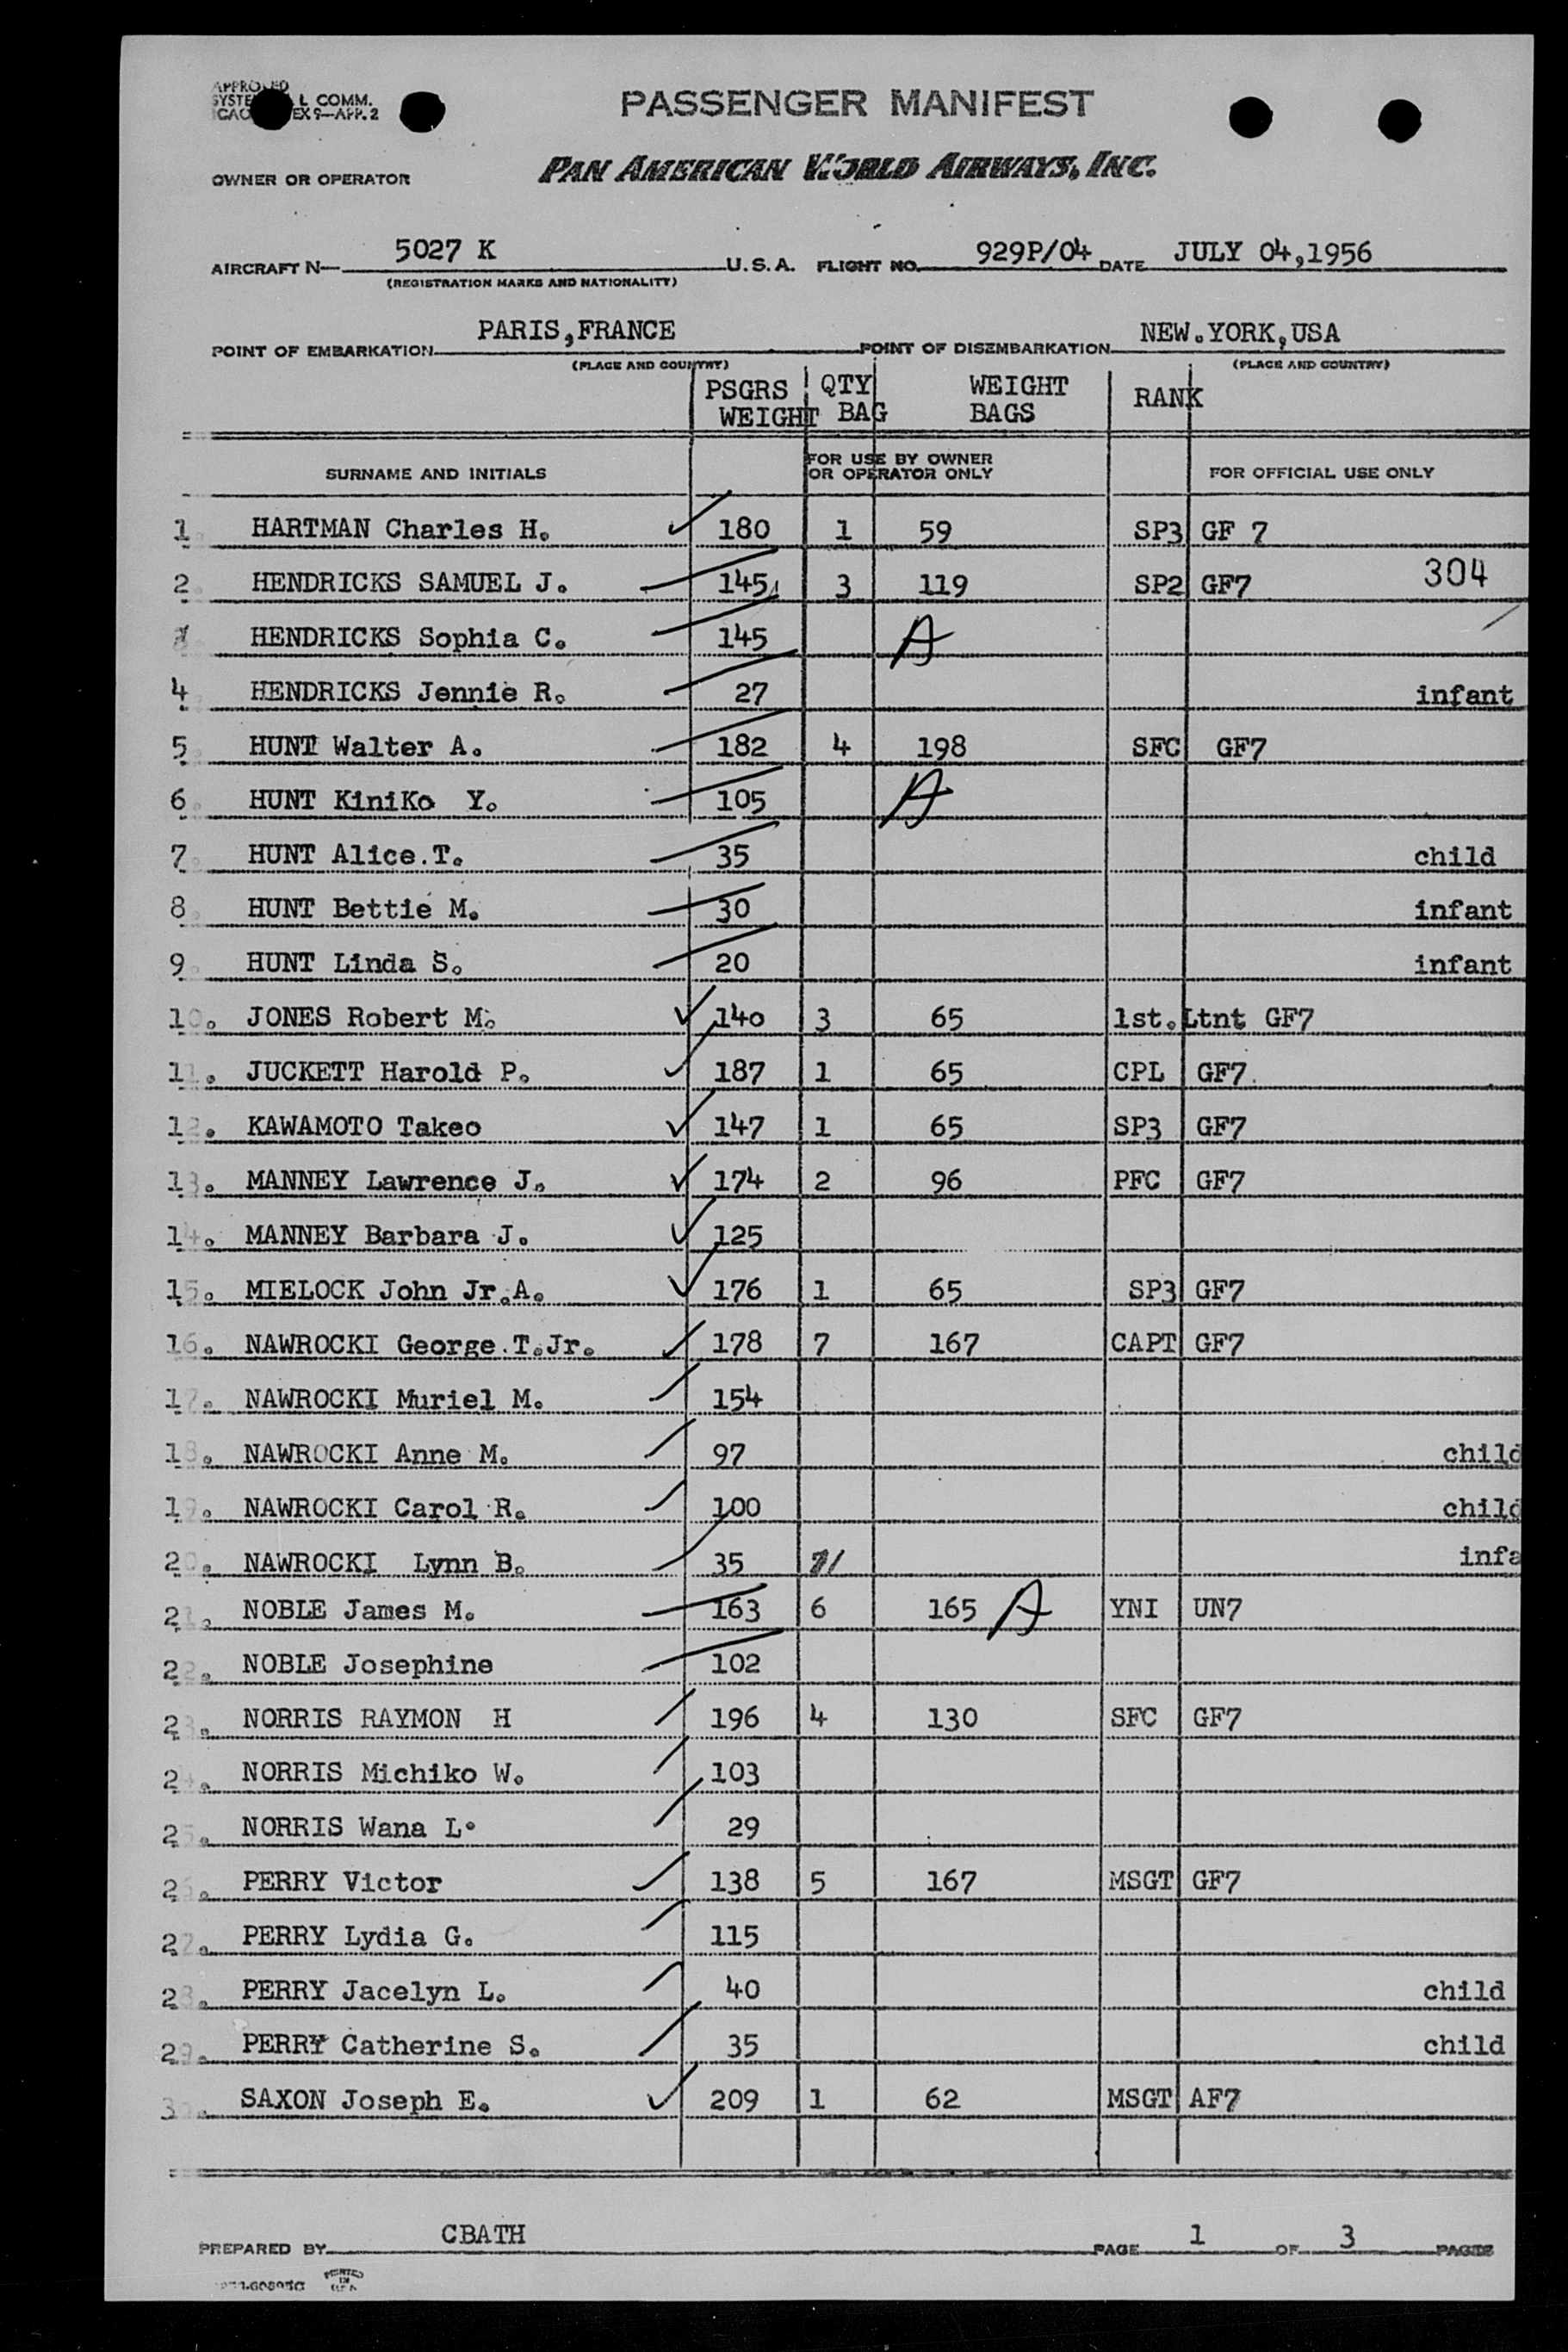 APPROVED
L COMM.
EX 9—APP. 2
PASSENGER MANIFEST
OWNER OR OPERATOR PAN AMERICAN WORLD AIRWAYS, INC.
AIRCRAFT N— 5027 K U.S.A. FLIGHT NO. 929P/04 DATE JULY 04,1956
(REGISTRATION MARKS AND NATIONALITY)
POINT OF EMBARKATION PARIS,FRANCE POINT OF DISEMBARKATION NEW.YORK,USA
(PLACE AND COUNTRY) (PLACE AND COUNTRY)
PSGRS WEIGHT QTY BAG WEIGHT BAGS RANK
SURNAME AND INITIALS FOR USE BY OWNER OR OPERATOR ONLY FOR OFFICIAL USE ONLY
1 HARTMAN Charles H. 180 1 59 SP3 GF 7
2 HENDRICKS SAMUEL J. 145 3 119 SP2 GF7 304
HENDRICKS Sophia C. 145 A
4 HENDRICKS Jennie R. 27 infant
5 HUNT Walter A. 182 4 198 SFC GF7
6 HUNT KiniKo Y. 105 A
7 HUNT Alice.T. 35 child
8 HUNT Bettie M. 30 infant
9 HUNT Linda S. 20 infant
10. JONES Robert M. 140 3 65 1st.Ltnt GF7
11. JUCKETT Harold P. 187 1 65 CPL GF7
12. KAWAMOTO Takeo 147 1 65 SP3 GF7
13. MANNEY Lawrence J. 174 2 96 PFC GF7
14. MANNEY Barbara J. 125
15. MIELOCK John Jr.A. 176 1 65 SP3 GF7
16. NAWROCKI George.T.Jr. 178 7 167 CAPT GF7
17. NAWROCKI Muriel M. 154
18. NAWROCKI Anne M. 97 child
19. NAWROCKI Carol R. 100 child
20. NAWROCKI Lynn B. 35 infa
21. NOBLE James M. 163 6 165 A YNI UN7
22. NOBLE Josephine 102
23. NORRIS RAYMON H 196 4 130 SFC GF7
24. NORRIS Michiko W. 103
25. NORRIS Wana L. 29
26. PERRY Victor 138 5 167 MSGT GF7
27. PERRY Lydia G. 115
28. PERRY Jacelyn L. 40 child
29. PERRY Catherine S. 35 child
30. SAXON Joseph E. 209 1 62 MSGT AF7
PREPARED BY CBATH PAGE 1 OF 3 PAGES
PRINTED
IN
U.S.A.